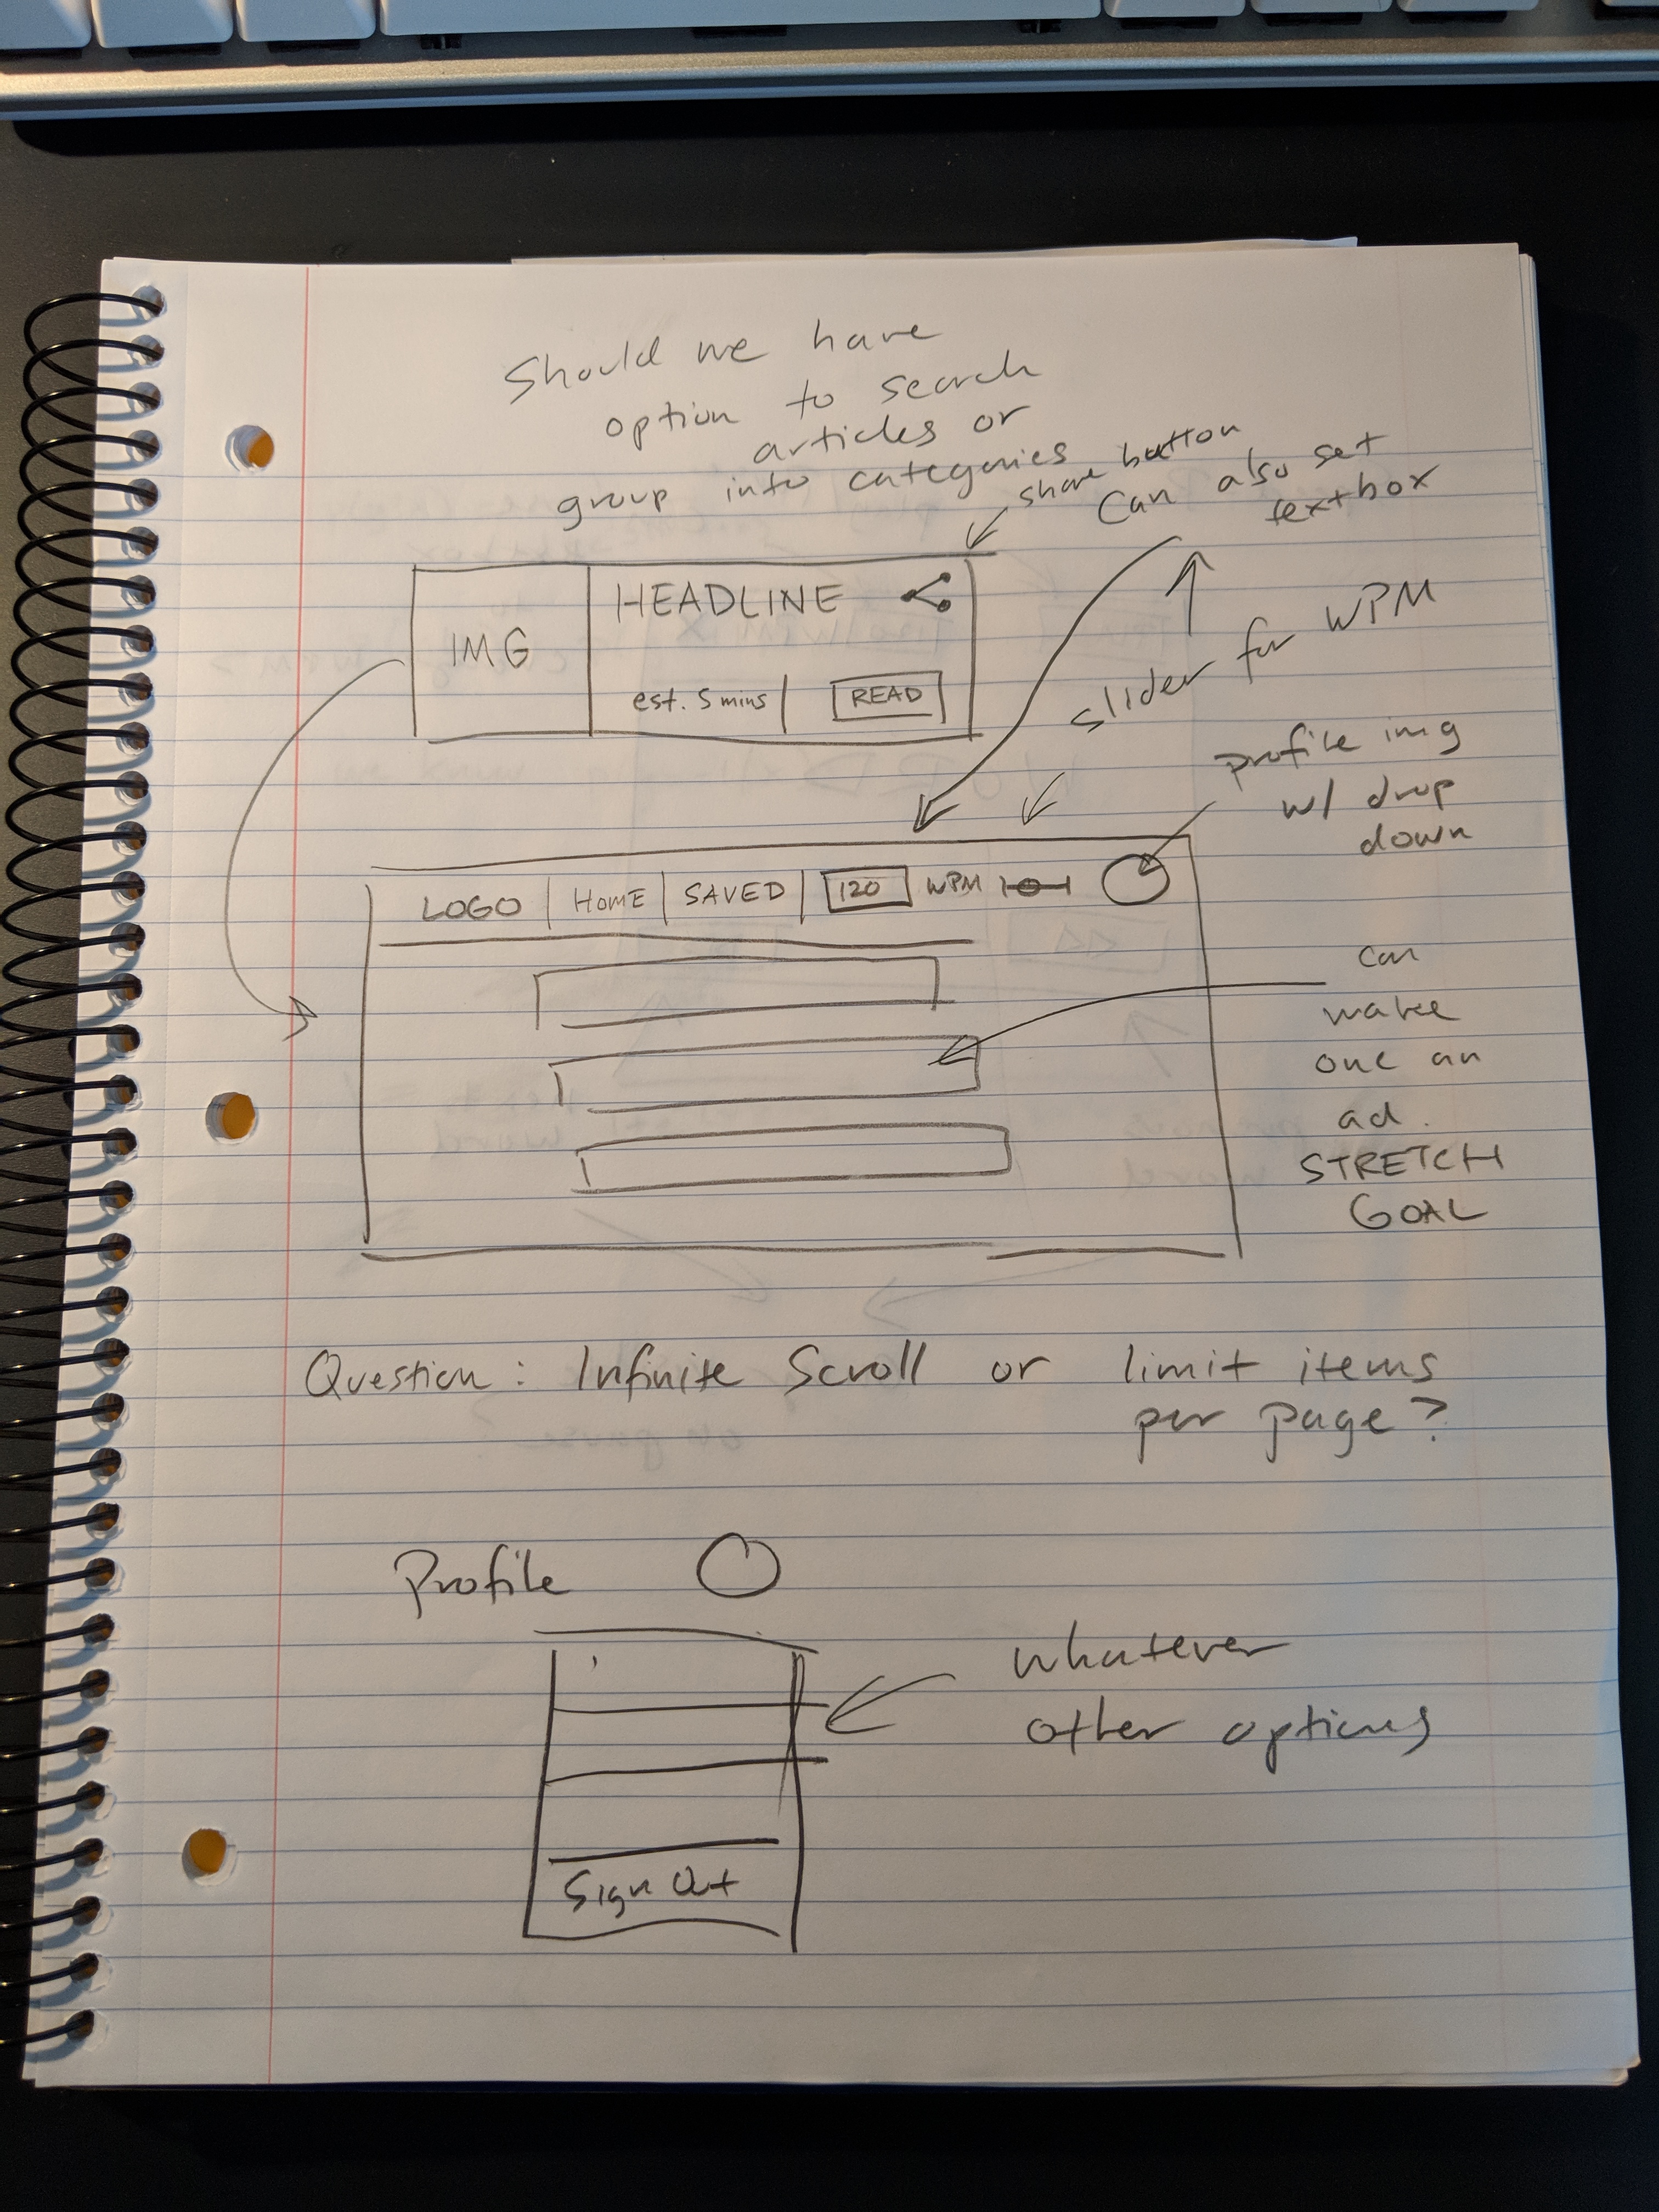 Should we have
option to search
articles or
group into categories
share button
Can also set
textbox
HEADLINE
IMG
est. 5 mins
READ
slider for WPM
profile img
w/ drop
down
LOGO
HOME
SAVED
120
WPM
can
make
one an
ad.
STRETCH
GOAL
Question: Infinite Scroll or limit items
per page?
Profile
whatever
other options
Sign Out